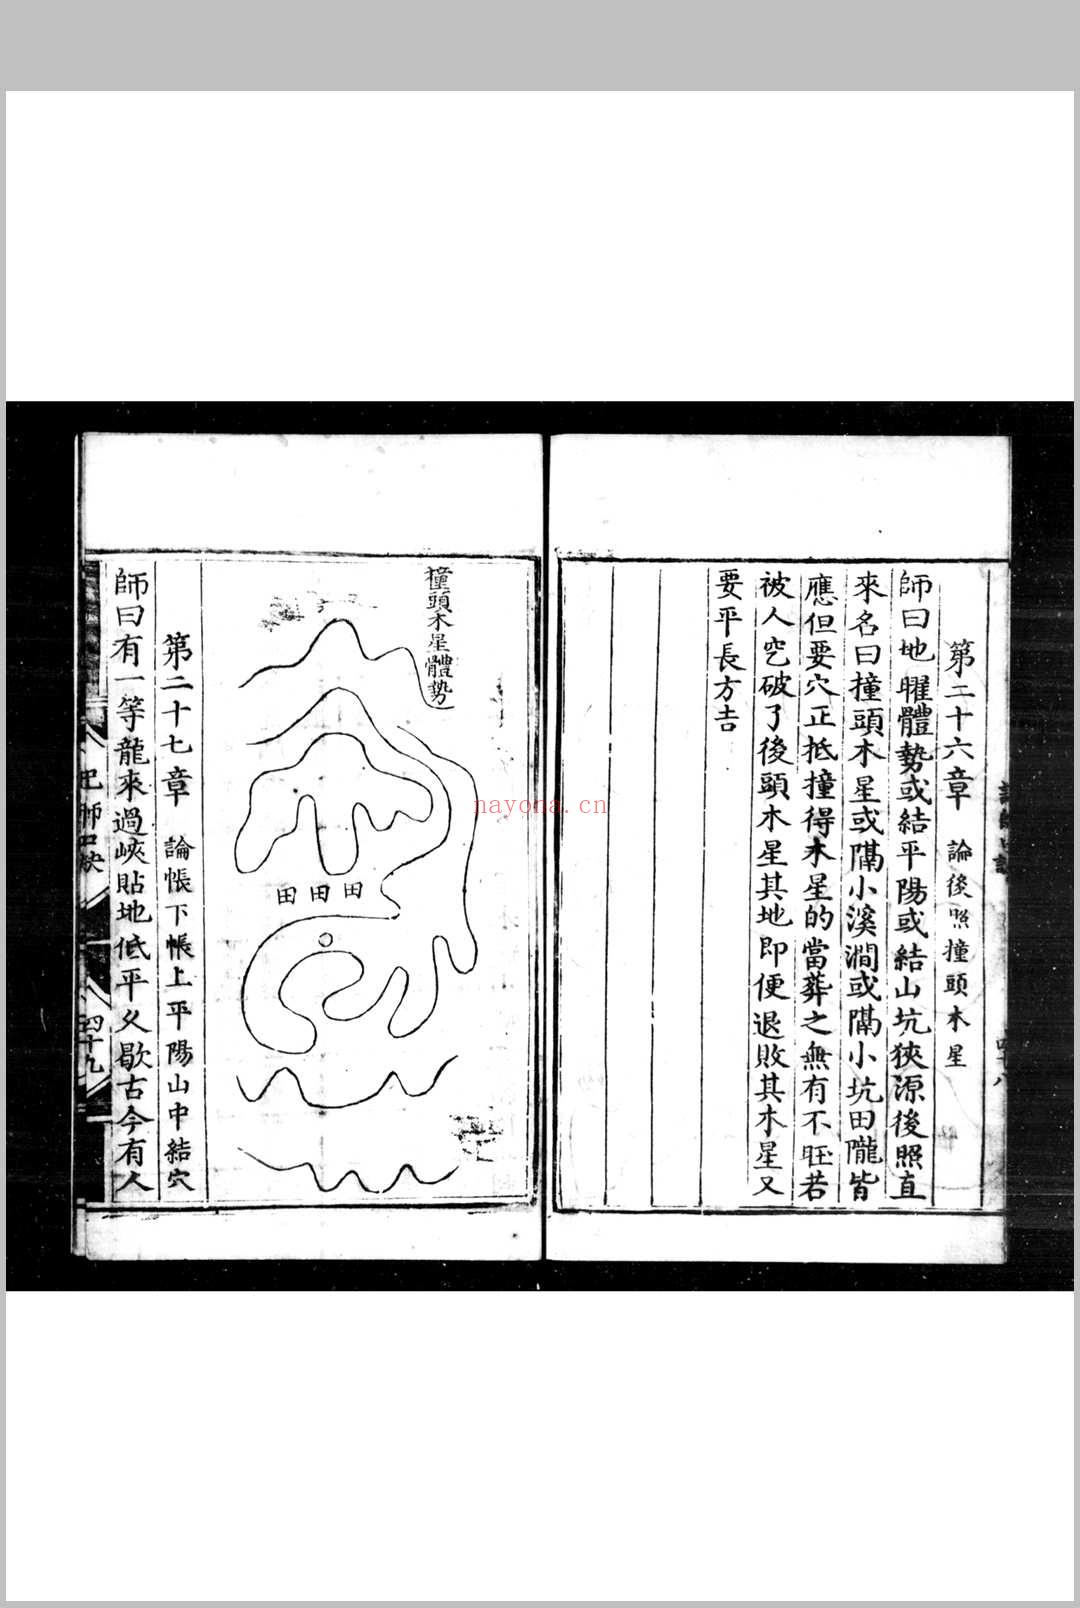 第二十六章　論後照撞頭木星
師曰地曜體勢或結平陽或結山坑狹源後照直
來名曰撞頭木星或隔小溪澗或隔小坑田隴皆
應但要穴正抵撞得木星的當葬之無有不旺若
被人穵破了後頭木星其地即便退敗其木星又
要平長方吉
四十八
撞頭木星體勢
田田田
第二十七章　論帳下帳上平陽山中結穴
師曰有一等龍來過峽貼地低平久歇古今有人
師口訣
四十九
nayona.cn